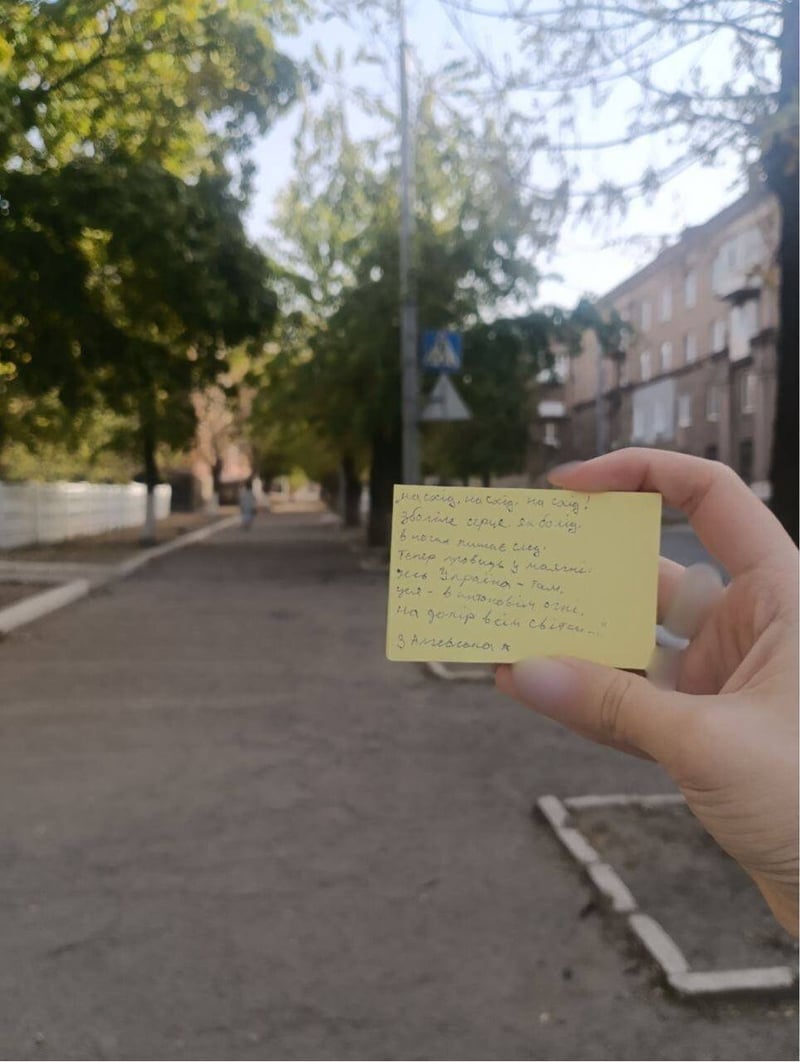 „На схід, на схід, на схід!
Зболіле серце як болід
в ночах лишає слід.
Тепер провидь у маячні:
уся Україна – там,
уся – в антоновім огні,
на докір всім світам..."
З Алчевська